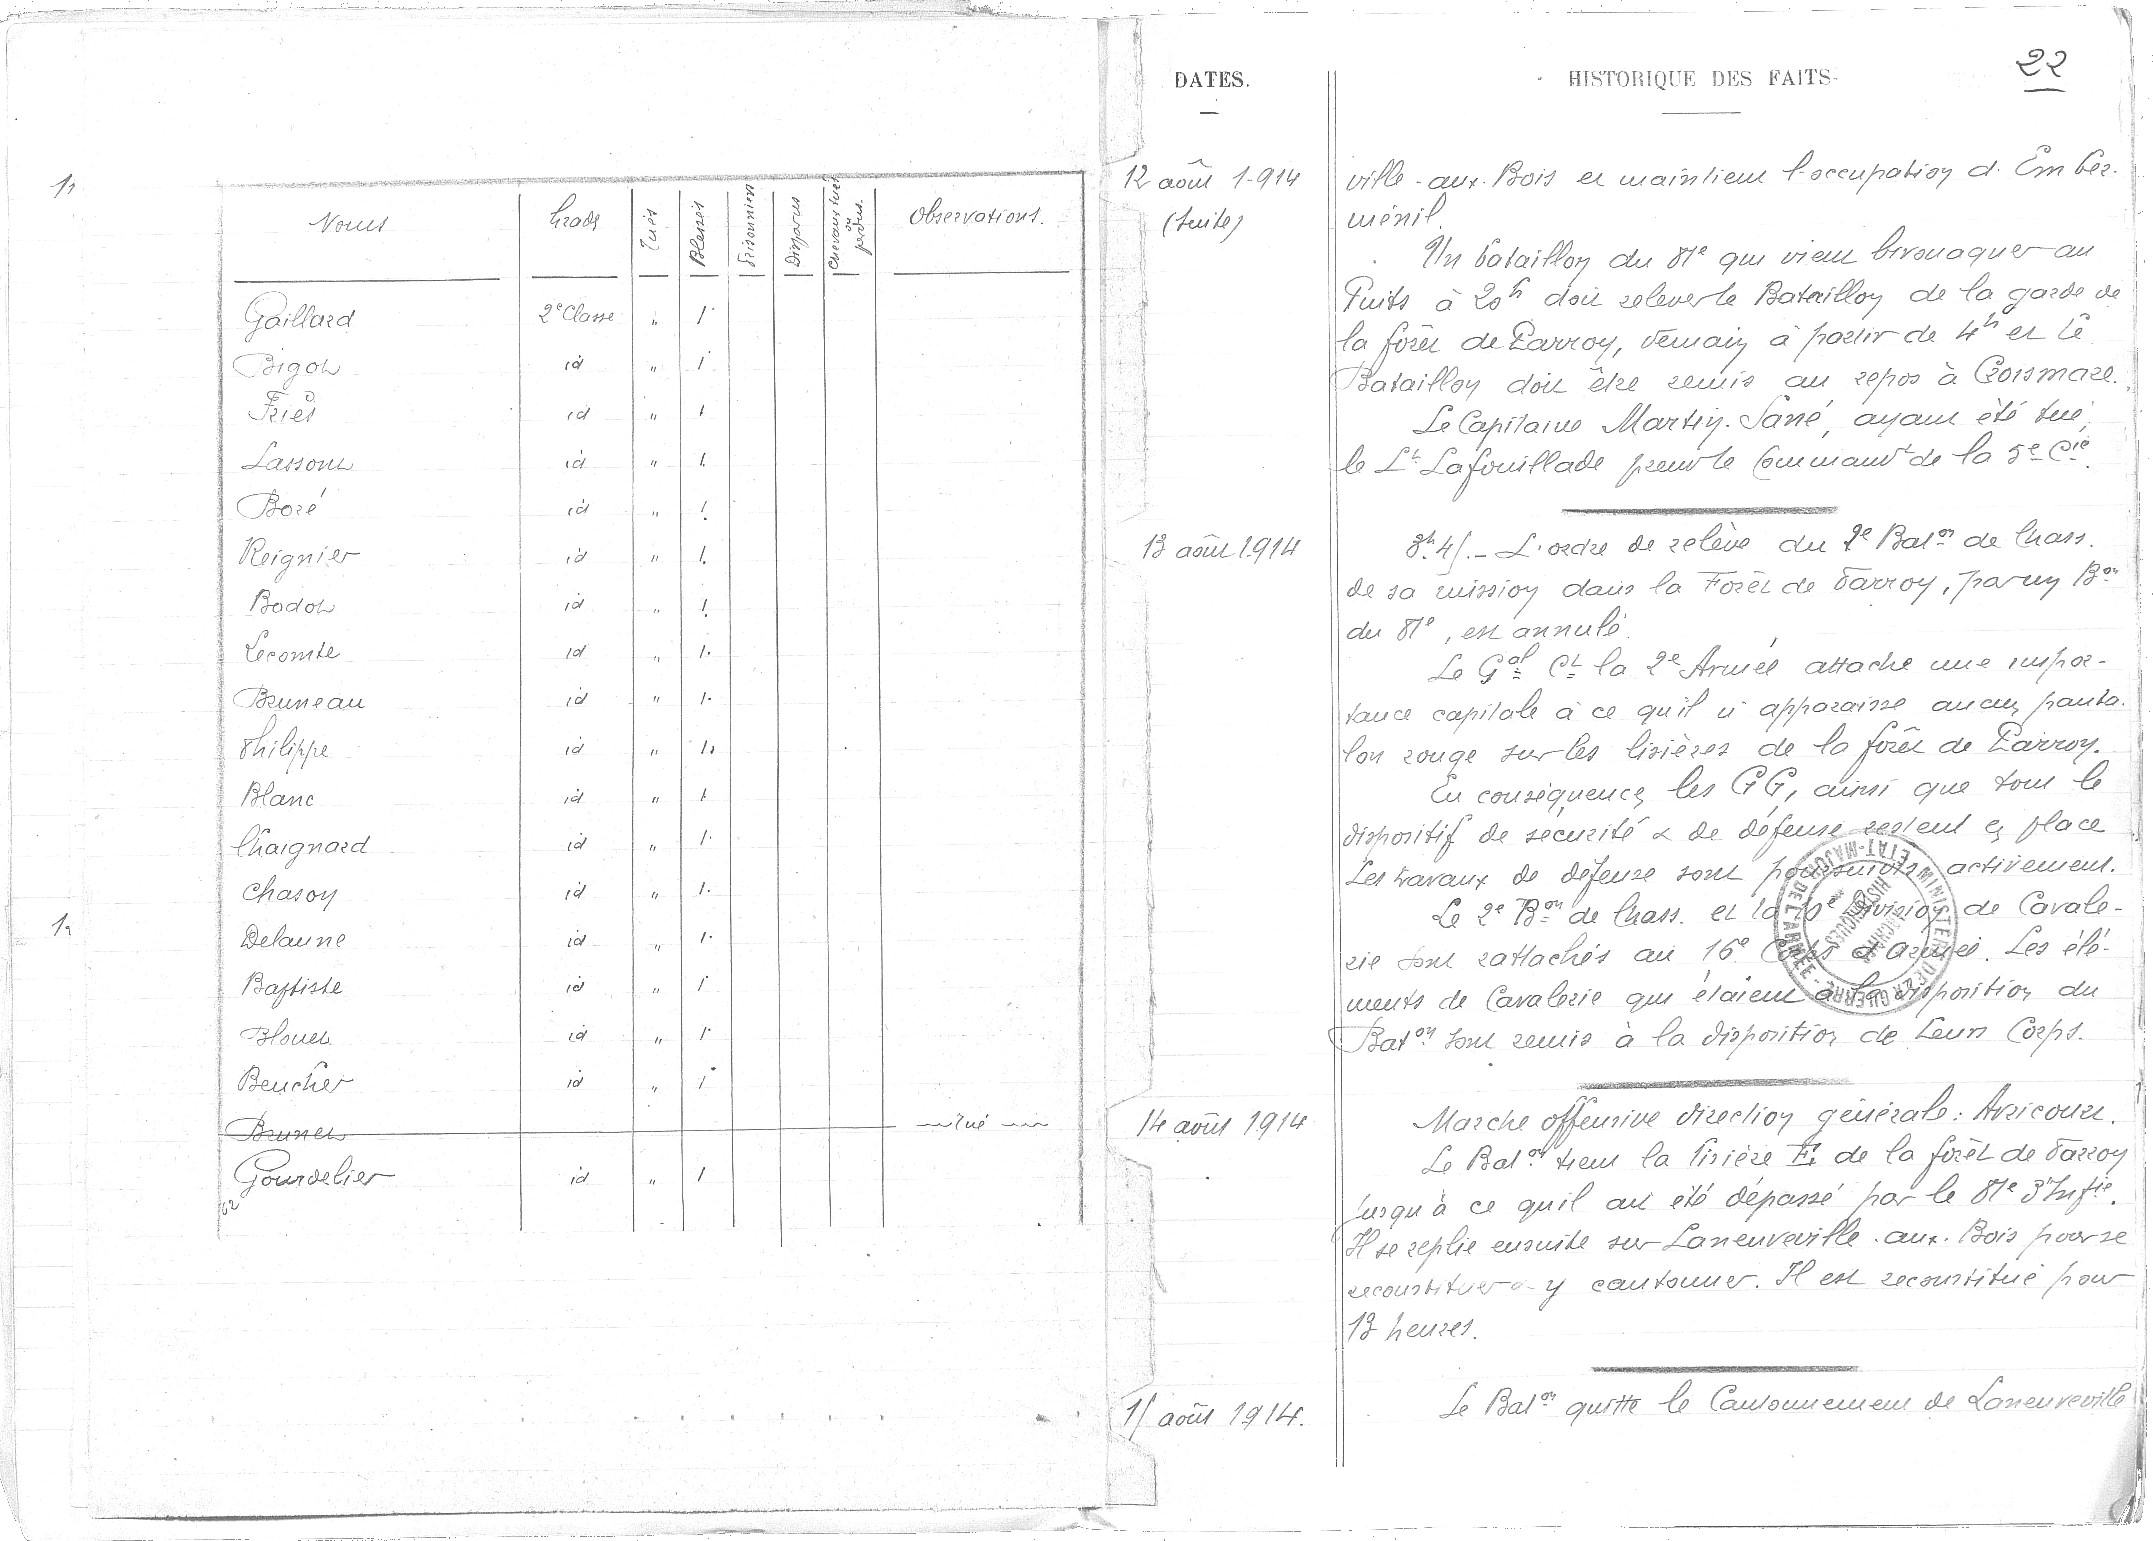 Noms Grade Tués Blessés Prisonniers Disparus Chevaux tués ou perdus. Observations.
Gaillard 2e Classe " 1
Bigot id " 1
Friès id " 1
Lassout id " 1
Boré id " 1
Reignier id " 1
Bodot id " 1
Lecomte id " 1
Bruneau id " 1
Philippe id " 1
Blanc id " 1
Chaignard id " 1
Chason id " 1
Delaune id " 1
Baptiste id " 1
Blouet id " 1
Beucher id " 1
Brunet — Tué —
Gourdelier id " 1
62
22
DATES. HISTORIQUE DES FAITS
12 août 1914 ville-aux-Bois et maintient l'occupation d'Ember-
(suite) ménil.
Un bataillon du 81e qui vient bivouaquer au
Puits à 20h doit relever le Bataillon de la garde de
la forêt de Parroy, demain à partir de 4h et le
Bataillon doit être remis au repos à Croismare.
Le Capitaine Martin-Sané, ayant été tué,
le Lt Lafouillade prend le Commandt de la 5e Cie.
13 août 1914 3h.45.- L'ordre de relève du 2e Baton de Chass.
de sa mission dans la Forêt de Parroy, par un Bon
du 81e, est annulé.
Le Gal Ct la 2e Armée attache une impor-
tance capitale à ce qu'il n'apparaisse aucun panta-
lon rouge sur les lisières de la forêt de Parroy.
En conséquence, les GG, ainsi que tout le
dispositif de sécurité & de défense restent en place
Les travaux de défense sont poursuivis activement.
Le 2e Bon de Chass. et la 10e Division de Cavale-
rie sont rattachés au 16e Corps d'armée. Les élé-
ments de Cavalerie qui étaient à la disposition du
Baton sont remis à la disposition de leurs Corps.
MINISTERE DE LA GUERRE - ETAT-MAJOR DE L'ARMEE -
HISTORIQUES
14 août 1914 Marche offensive direction générale : Avricourt.
Le Baton tient la lisière E. de la forêt de Parroy
jusqu'à ce qu'il ait été dépassé par le 81e d'Infie.
Il se replie ensuite sur Laneuveville-aux-Bois pour se
reconstituer & y cantonner. Il est reconstitué pour
13 heures.
15 août 1914. Le Baton quitte le Cantonnement de Laneuveville